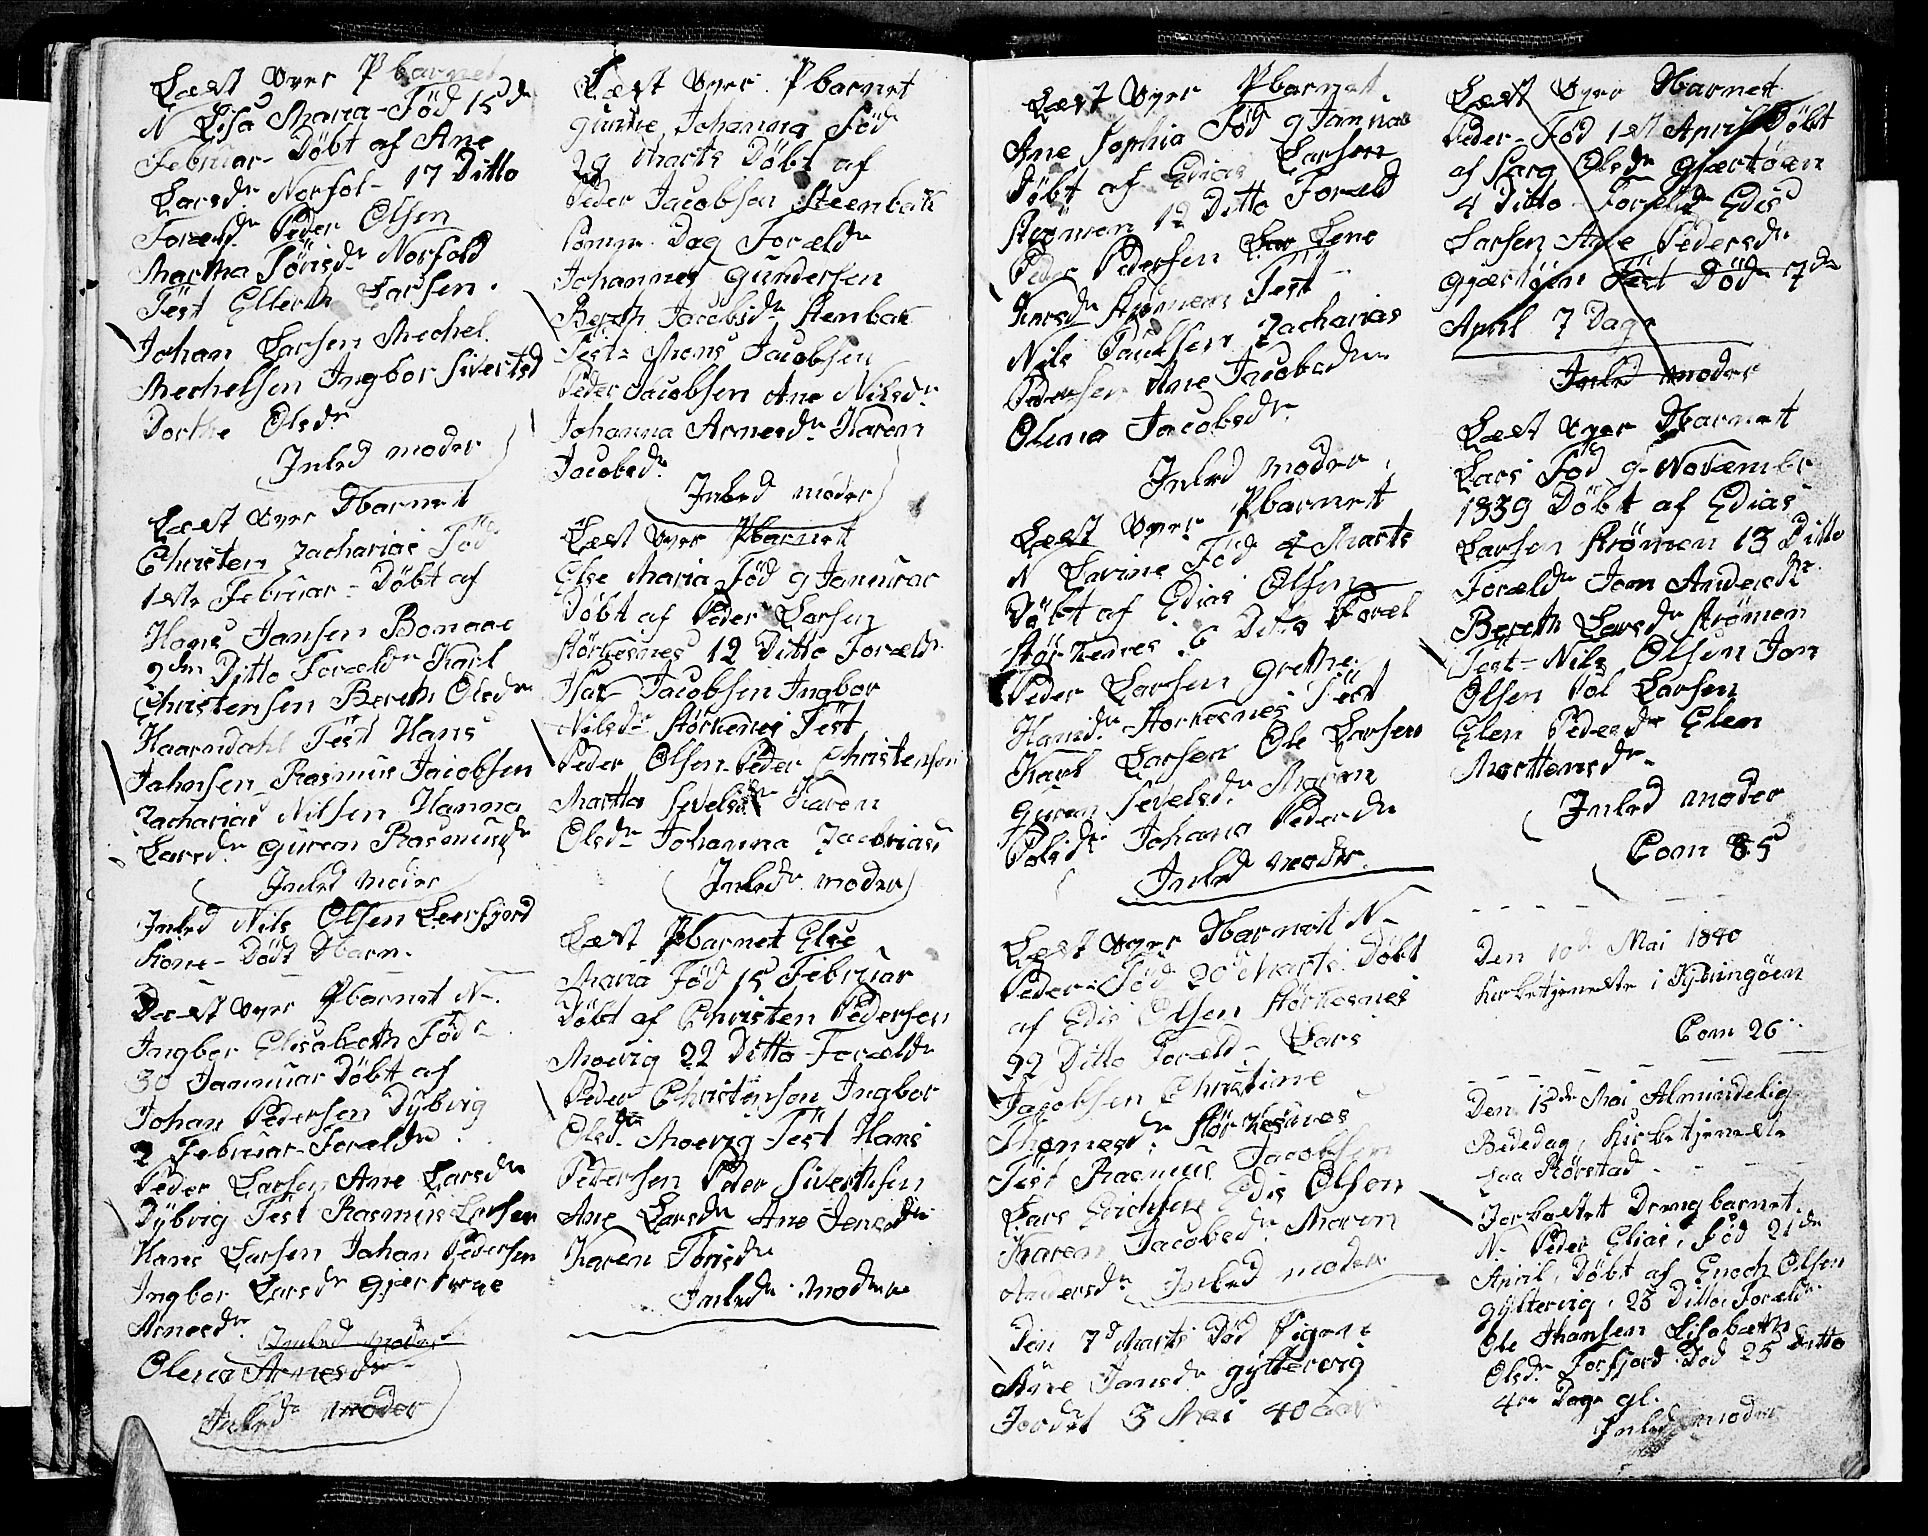 Læst over Pbarnet
N Lisa Maria - Föd 15 de
Februar - Döbt af Ane
Larsdr Norfol - 17 Ditto
Foræld. Peder Olsen
Martha Tönisdr Norfold
Test Ellerth Larsen.
Johan Larsen Mechel
Mechelsen Ingbor Sivertsd
Dorthe Olsdr
Inled moder
Læst over Dbarnet
Christen Zacharias Föd
1ste Februar - Döbt af
Hans Jansen Bomaae
2den Ditto Foræld Karl
Christensen Bereth Olsdr
Haarndahl Test Hans
Jahnsen - Rasmus Jacobsen
Zacharias Nilsen Hanna
Larsdr Guren Rasmusdr
Inled Moder
Inled Nils Olsen Leerfjord
Kone - Dödt Dbarn.
Læst over Pbarnet N -
Ingbor Elisabeth Föd -
30 Januuar Döbt af
Johan Pedersen Dybvig
2 Februar - Foreldr
Peder Larsen Ane Larsdr
Dybvig Test Rasmus Larsen
Hans Larsen Johan Pedersen
Ingbor Larsdr Gjertrue
Arnesdr.
Inled moder
Olena Arnesdr
Inled moder
Læst over Pbarnet
Gurine Johanna Föd
29 Marts Döbt af
Peder Jacobsen Steenbak
samme Dag Forældr
Johannes Gundersen
Bereth Jacobsdr Stenbak
Test - Mons Jacobsen
Peder Jacobsen Ane Nilsdr
Johanna Arnesdr Karen
Jacobsdr
Inled moder
Læst over Pbarnet
Else Maria Föd 9 Januuar
Döbt af Peder Larsen
Störkesnes 12 Ditto Forældr
Isac Jacobsen Ingbor
Nilsdr Störkenes Test
Peder Olsen - Peder Christensen
Martha Sivelsdr Karen
Olsdr Johanna Zacrias
Inledr moder
Læst Pbarnet Else
Maria Föd 15 Februar
Döbt af Christen Pedersen
Moevig 22 Ditto - Forældr
Peder Christensen Ingbor
Olsdr Moevig - Test Hans
Pedersen Peder Siverthsen
Ane Larsdr Ane Jensdr
Karen Thrisdr
Inledr moderen
Læst over Pbarnet
Ane Sophia Föd 9 Januar
Döbt af Edias Larsen
Strömen 12 Ditto Foræld
Peder Pedersen Lene
Larsdr Strömens Test -
Nils Paulsen Zacharias
Pedersen Ane Jacobsdr
Olena Jacobsdr
Inled moder
Læst over Pbarnet
N Lavine Föd 4 Marts
Döbt af Edias Olsen
Störkenes 6 Ditto Foræl
Peder Larsen Grethe
Hansdr Storkesnes - Test
Karl Larsen Ole Larsen
Guren Sevelsdr Maren
Polsdr Johana Pedersdr
Inled moder.
Læst over Dbarnet N -
Peder - Föd 20 Marts Döbt
af Edis Olsen Störkesnes
22 Ditto Foræld - Lars
Jacobsen Christine
Thomasdr Störkesnes
Test Rasmus Jacobsen
Lars Erichsen Edis Olsen
Karen Jacobsdr Maren
Andersdr Inled moder
Den 7d Marts Död Pigen
Ane Jansdr Gyltervig
Jordet 3 Mai 40 aar
Læst over Dbarnet
Peder - Föd 1st April Döbt
af Olsdr Gjærtöen
4 Ditto - Forældr Edis
Larsen Ane Pedersdr
Gjærtöen Test Död 7de
April 7 Dage
Inled moder
Læst over Dbarnet
Lars Föd 9 - November
1839 Döbt af Edias
Larsen Strömen 13 Ditto
Forældr Jan Anders
Bereth Larsdr Strömen
Test - Nils Olsen Jon
Olsen Pol Larsen
Elen Pedersdr Elen
Morttensdr
Inled moder
Com 85
Den 10de Mai 1840
Kirketjeneste i Kjæringöen
Com 26
Den 15de Mai Almindelig
Bededag, Kirketjeneste
paa Rörstad
Jordfæstet Drengbarnet
N - Peder Elias, föd 21de
April, Döbt af Enoch Olsen
Gyltervig, 25 Ditto, Foræld
Ole Jhansen Lisabæth
Olsdr Torfjord Död 25 Ditto
4re Dage gl.
Inled moder